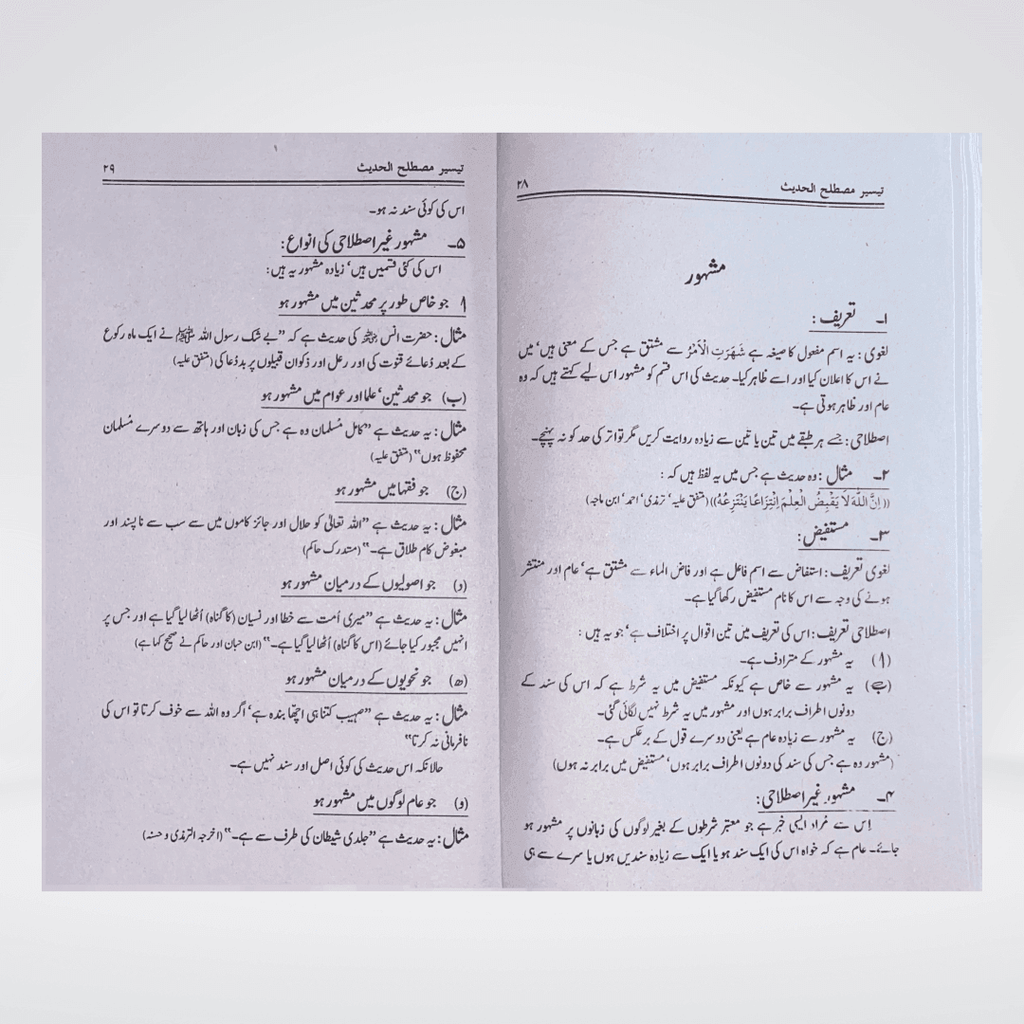 تیسیر مصطلح الحدیث ۲۸
مشہور
۱۔ تعریف :
لغوی : یہ اسم مفعول کا صیغہ ہے شَهَرَتِ الْاَمْرُ سے مشتق ہے جس کے معنی ہیں’ میں
نے اس کا اعلان کیا اور اسے ظاہر کیا۔ حدیث کی اس قسم کو مشہور اس لیے کہتے ہیں کہ وہ
عام اور ظاہر ہوتی ہے۔
اصطلاحی : جسے ہر طبقے میں تین یا تین سے زیادہ روایت کریں مگر تواتر کی حد کو نہ پہنچے۔
۲۔ مثال : وہ حدیث ہے جس میں یہ لفظ ہیں کہ :
((اِنَّ اللّٰهَ لَا يَقْبِضُ الْعِلْمَ اِنْتِزَاعًا يَنْتَزِعُهُ)) (متفق علیہ’ ترمذی’ احمد’ ابن ماجہ)
۳۔ مستفیض :
لغوی تعریف : استفاض سے اسم فاعل ہے اور فاض الماء سے مشتق ہے’ عام اور منتشر
ہونے کی وجہ سے اس کا نام مستفیض رکھا گیا ہے۔
اصطلاحی تعریف : اس کی تعریف میں تین اقوال پر اختلاف ہے’ جو یہ ہیں :
(ا) یہ مشہور کے مترادف ہے۔
(ب) یہ مشہور سے خاص ہے کیونکہ مستفیض میں یہ شرط ہے کہ اس کی سند کے
دونوں اطراف برابر ہوں اور مشہور میں یہ شرط نہیں لگائی گئی۔
(ج) یہ مشہور سے زیادہ عام ہے یعنی دوسرے قول کے برعکس ہے۔
(مشہور وہ ہے جس کی سند کی دونوں اطراف برابر ہوں’ مستفیض میں برابر نہ ہوں)
۴۔ مشہور غیر اصطلاحی :
اِس سے مُراد ایسی خبر ہے جو معتبر شرطوں کے بغیر لوگوں کی زبانوں پر مشہور ہو
جائے۔ عام ہے کہ خواہ اس کی ایک سند ہو یا ایک سے زیادہ سندیں ہوں یا سرے سے ہی
تیسیر مصطلح الحدیث ۲۹
اس کی کوئی سند نہ ہو۔
۵۔ مشہور غیر اصطلاحی کی انواع :
اس کی کئی قسمیں ہیں’ زیادہ مشہور یہ ہیں :
ا جو خاص طور پر محدثین میں مشہور ہو
مثال : حضرت انس رضی اللہ عنہ کی حدیث ہے کہ “بے شک رسول اللہ ﷺ نے ایک ماہ رکوع
کے بعد دُعائے قنوت کی اور رعل اور ذکوان قبیلوں پر بددُعا کی (متفق علیہ)
(ب) جو محدثین’ علما اور عوام میں مشہور ہو
مثال : یہ حدیث ہے “کامل مُسلمان وہ ہے جس کی زبان اور ہاتھ سے دوسرے مُسلمان
محفوظ ہوں” (متفق علیہ)
(ج) جو فقہا میں مشہور ہو
مثال : یہ حدیث ہے “اللہ تعالیٰ کو حلال اور جائز کاموں میں سے سب سے ناپسند اور
مبغوض کام طلاق ہے۔” (مستدرک حاکم)
(د) جو اصولیوں کے درمیان مشہور ہو
مثال : یہ حدیث ہے “میری اُمت سے خطا اور نسیان (کا گناہ) اُٹھا لیا گیا ہے اور جس پر
انہیں مجبور کیا جائے (اس کا گناہ) اُٹھا لیا گیا ہے۔” (ابن حبان اور حاکم نے صحیح کہا ہے)
(ھ) جو نحویوں کے درمیان مشہور ہو
مثال : یہ حدیث ہے “صہیب کتنا ہی اچھا بندہ ہے’ اگر وہ اللہ سے خوف کرتا تو اس کی
نافرمانی نہ کرتا”
حالانکہ اس حدیث کی کوئی اصل اور سند نہیں ہے۔
(و) جو عام لوگوں میں مشہور ہو
مثال : یہ حدیث ہے “جلدی شیطان کی طرف سے ہے۔” (اخرجہ الترمذی و حسنہ)